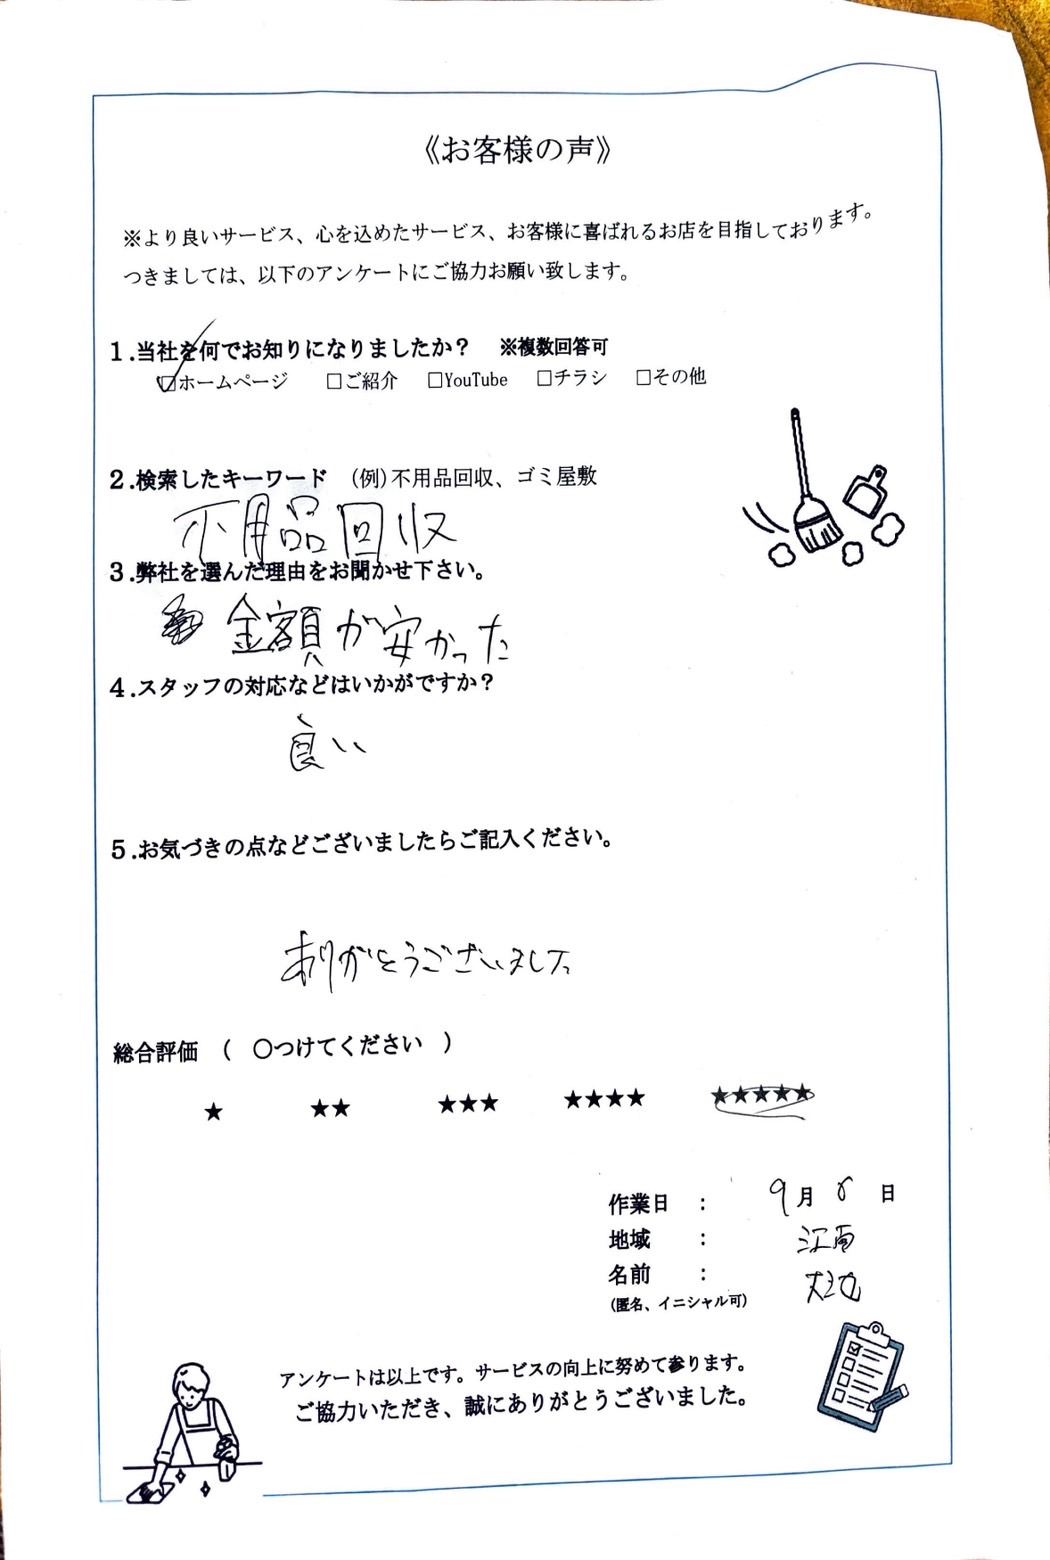 《お客様の声》
※より良いサービス、心を込めたサービス、お客様に喜ばれるお店を目指しております。
つきましては、以下のアンケートにご協力お願い致します。
1.当社を何でお知りになりましたか？ ※複数回答可
☑ホームページ □ご紹介 □YouTube □チラシ □その他
2.検索したキーワード (例)不用品回収、ゴミ屋敷
不用品回収
3.弊社を選んだ理由をお聞かせ下さい。
金額が安かった
4.スタッフの対応などはいかがですか？
良い
5.お気づきの点などございましたらご記入ください。
ありがとうございました
総合評価 （ ○つけてください ）
★ ★★ ★★★ ★★★★ ★★★★★
作業日 ： 9月8日
地域 ： 江南
名前 ：
(匿名、イニシャル可)
アンケートは以上です。サービスの向上に努めて参ります。
ご協力いただき、誠にありがとうございました。